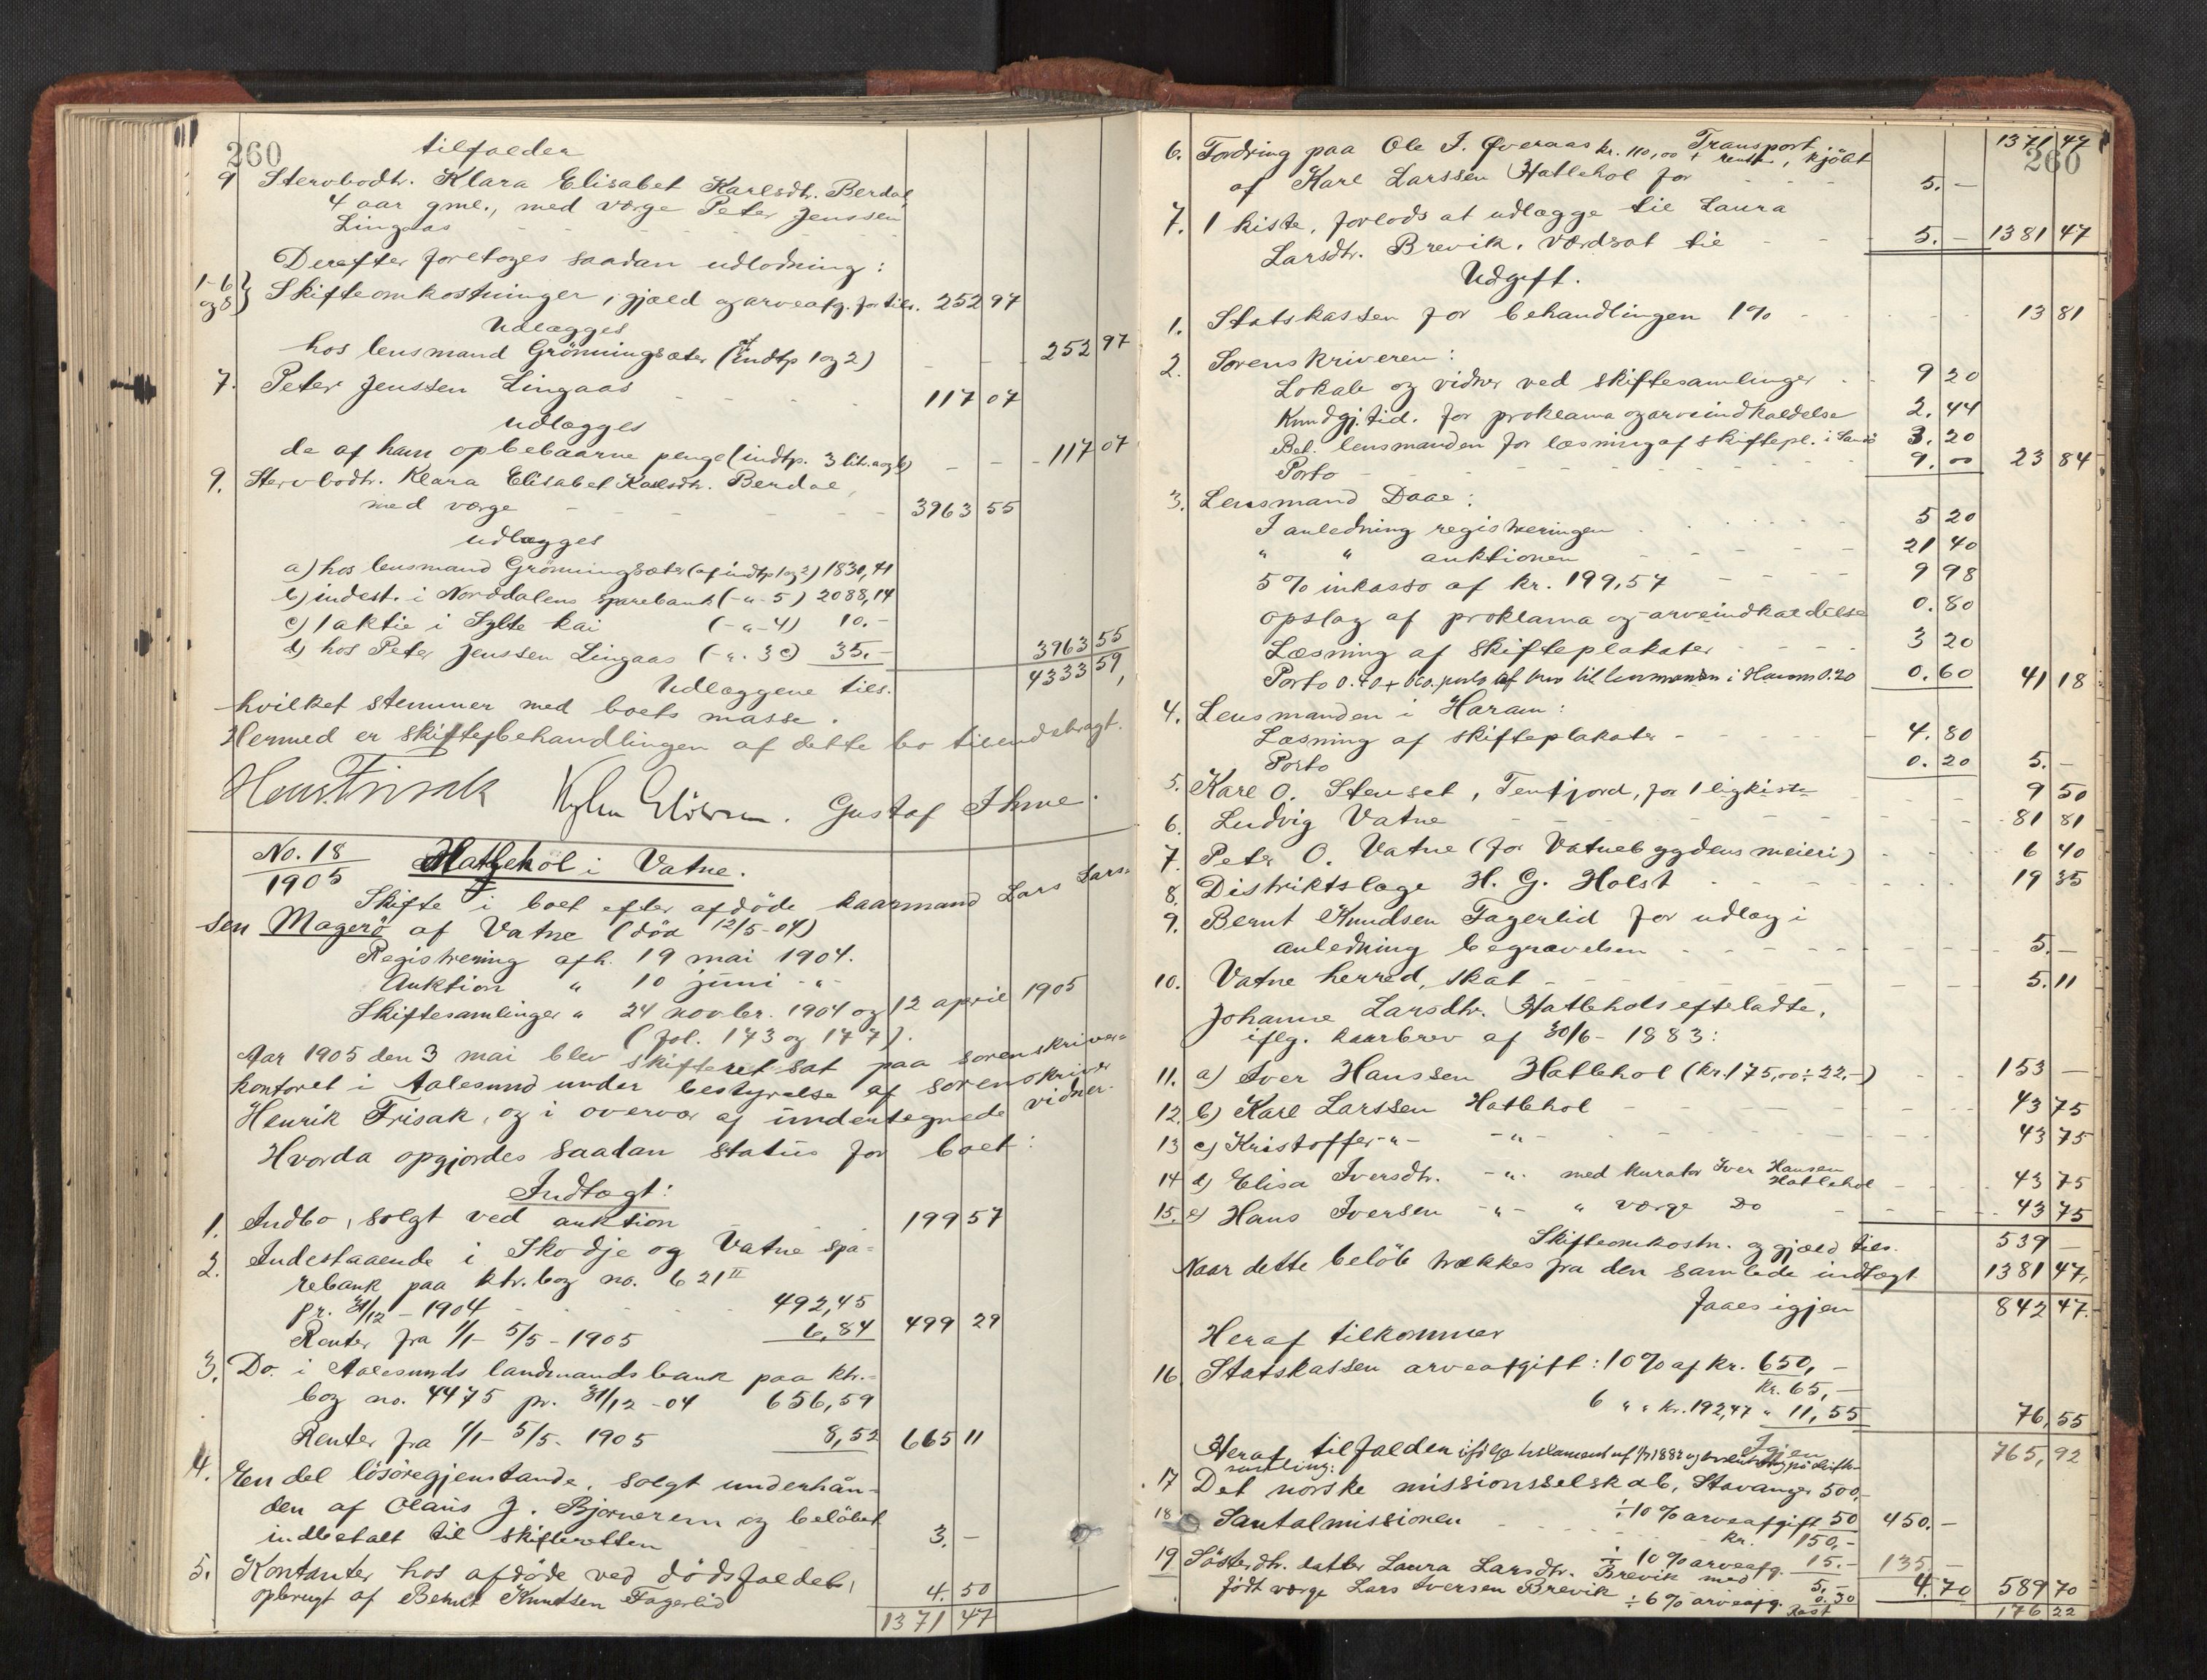 260
tilfalder
9 Stervbodtr. Klara Elisabet Karlsdtr. Berdal
4 aar gml., med værge Peter Jenssen
Lingaas
Derefter foretoges saadan udlodning:
1-6 og 8} Skifteomkostninger, gjæld og arveafg. før tils. 252 97
Udlægges
hos lensmand Grönningsæter (af indtp 1 og 2) 252 97
7. Peter Jenssen Lingaas 117 07
udlægges
de af ham opbebaarne penge (indtp. 3 litr. a og b) 117 07
9. Stervbodtr. Klara Elisabet Karlsdtr. Berdal,
med værge 3963 55
udlægges
a) hos lensmand Grönningsæter (af indtp 1 og 2) 1830,41
b) indest. i Norddalens sparebank (-"- 5) 2088,14
c) 1 aktie i Sylte kai (-"- 4) 10.-
d) hos Peter Jenssen Lingaas (-"- 3 c) 35.- 3963 55
Udlæggene tils. 4333 59,
hvilket stemmer med boets masse.
Hermed er skiftebehandlingen af dette bo tilendebragt.
Henr. Frisak Gustaf Ihme.
No. 18
1905
Hatlehol i Vatne.
Skifte i boet efter afdöde kaarmand Lars Lars-
sen Magerö af Vatne (död 12/5-04)
Registrering afh. 19 mai 1904.
Auktion " 10 juni -"-
Skiftesamlinger " 24 novbr. 1904 og 12 april 1905
(fol. 173 og 177).
Aar 1905 den 3 mai blev skifteret sat paa sorenskriver-
kontoret i Aalesund under bestyrelse af sorenskriver
Henrik Frisak, og i overvær af undertegnede vidner.
Hvorda opgjordes saadan status for boet:
Indtægt:
1. Indbo, solgt ved auktion 199 57
2. Indestaaende i Skodje og Vatne spa-
rebank paa ktr.bog no. 621 II
pr. 31/12-1904 492,45
Renter fra 1/1-5/5-1905 6,84 499 29
3. Do. i Aalesunds landmandsbank paa ktr.-
bog no. 4475 pr. 31/12-04 656,59
Renter fra 1/1-5/5-1905 8,52 665 11
4. En del lösöregjenstande, solgt underhån-
den af Olaus J. Bjørnerem og belöbet
indbetalt til skifteretten 3.-
5. Kontanter hos afdöde ved dödsfaldet,
opbrugt af Bernt Knutsen Fagerlid 4.50
1371 47
260
Transport 1371 47
6. Fordring paa Ole I. Øveraas kr. 110,00 + renter, kjöbt
af Karl Larssen Hatlehol for 5.-
7. 1 kiste, forlods at udlægge til Laura
Larsdtr. Brevik, værdsat til 5.- 1381 47
Udgift.
1. Statskassen for behandlingen 1% 13 81
2. Sorenskriveren:
Lokale og vidner ved skiftesamlinger 9 20
Kundgj.tid. for proklama og arveindkaldelse 2.44
Bet. lensmanden for læsning af skiftepl. i Sandö 3.20
Porto 9.00 23 84
3. Lensmand Daae:
I anledning registreringen 5 20
" " auktionen 21 40
5% inkasso af kr. 199,57 9 98
Opslag af proklama og arveindkaldelse 0.80
Læsning af skifteplakater 3 20
Porto 0.40 + porto af brev til lensmanden i Haram 0.20 0.60 41 18
4. Lensmanden i Haram:
Læsning af skifteplakater 4.80
Porto 0.20 5.-
5. Karl O. Stenset, Tenfjord, for 1 ligkiste 9 50
6. Ludvig Vatne 81 81
7. Peter O. Vatne (for Vatnebygdens meieri) 6 40
8. Distriktslæge H. G. Holst 19 35
9. Bernt Knudsen Fagerlid for udlæg i
anledning begravelsen 5.-
10. Vatne herred, skat 5.11
Johanne Larsdtr. Hatlehols efterladte,
iflg. kaarbrev af 30/6-1883:
11. a) Iver Hanssen Hatlehol (kr. 175,00 ÷ 22.-) 153 -
12. b) Karl Larssen Hatlehol 43 75
13 c) Kristoffer -"- -"- 43 75
14 d) Elisa Iversdtr. -"- med kurator Iver Hansen Hatlehol 43 75
15. e) Hans Iversen -"- " værge Do 43 75
Skifteomkostn. og gjæld tils. 539 -
Naar dette belöb trækkes fra den samlede indtægt 1381 47,
faaes igjen 842 47.
Heraf tilkommer
16. Statskassen arveafgift: 10% af kr. 650,-
kr. 65,-
6 " " kr. 192,47 " 11,55 76,55
Igjen 765,92
Heraf tilfalder ifölge testament af 1882 og
samling:
17 Det norske missionsselskab, Stavanger 500,-
÷ 10% arveafgift 50 450.-
18 Santalmissionen kr. 150,-
÷ 10% arveafg. 15.- 135 -
19 Sösterdtr. datter Laura Larsdtr. Brevik med 5.-
födt værge Lars Iversen Brevik ÷ 6% arveafg. 0.30 4.70 589 70
Rest 176 22